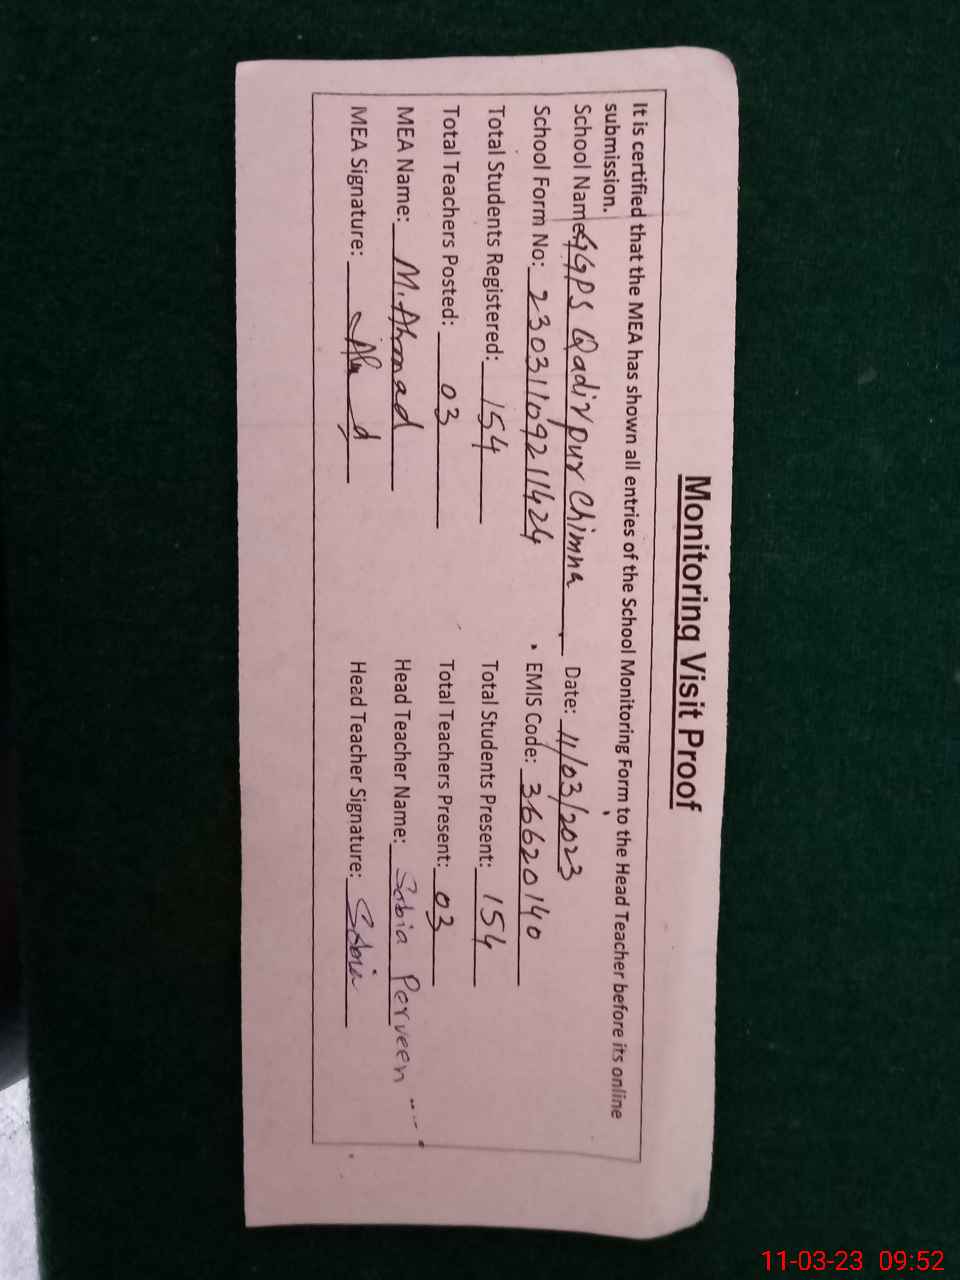 Monitoring Visit Proof
It is certified that the MEA has shown all entries of the School Monitoring Form to the Head Teacher before its online
submission.
School Name: GGPS Qadir pur Chimna Date: 11/03/2023
School Form No: 23031109211424 EMIS Code: 36620140
Total Students Registered: 154 Total Students Present: 154
Total Teachers Posted: 03 Total Teachers Present: 03
MEA Name: M. Ahmad Head Teacher Name: Sobia Perveen
MEA Signature: Head Teacher Signature: Sobia
11-03-23 09:52